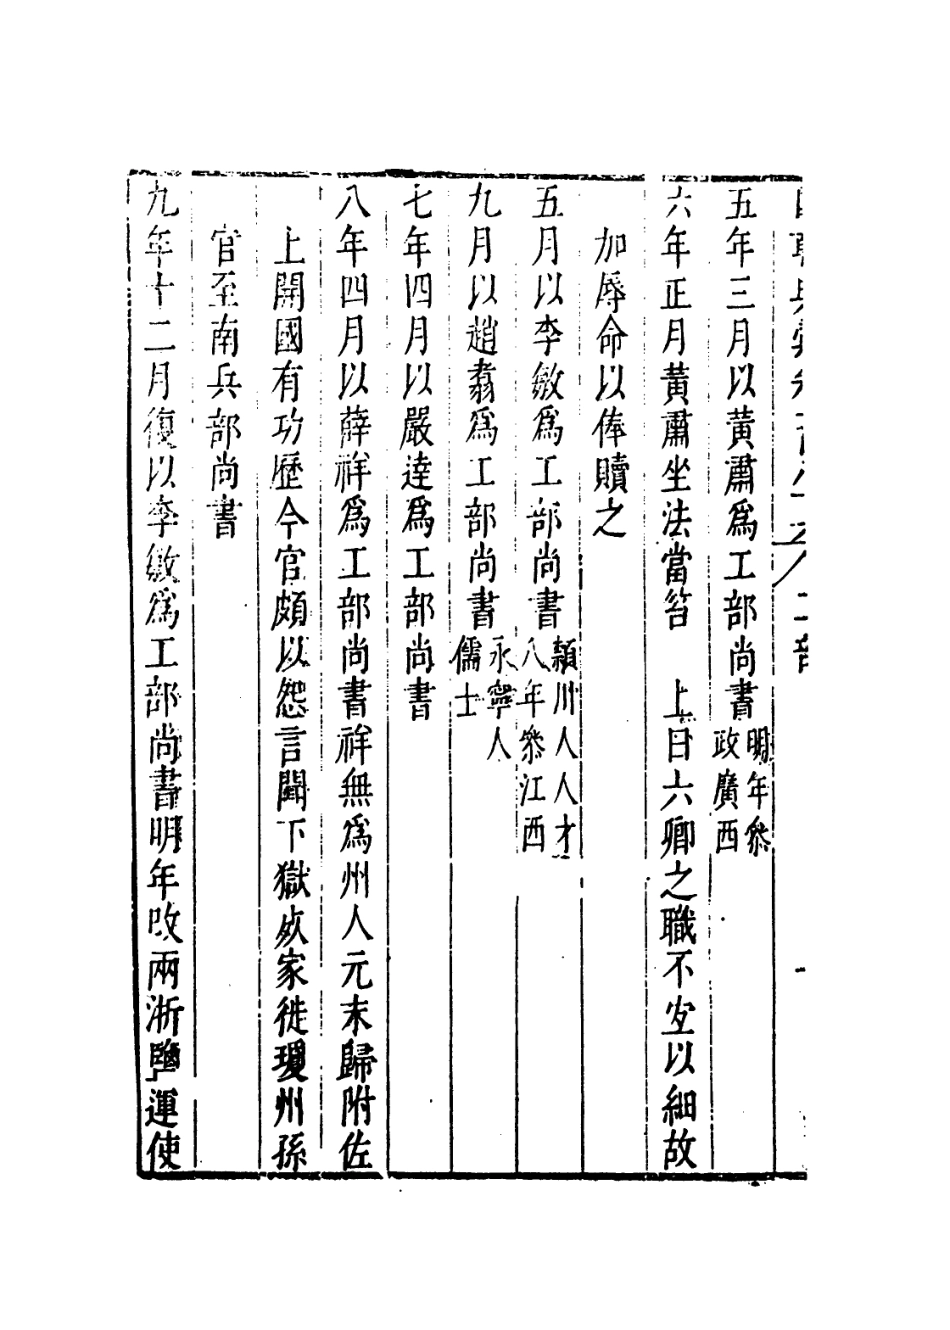 五年三月以黃肅為工部尚書明年叅政廣西
六年正月黃肅坐法當笞 上曰六卿之職不宜以細故
加辱命以俸贖之
五月以李敏為工部尚書潁川人人才八年叅江西
九月以趙翥為工部尚書永寧人儒士
七年四月以嚴逹為工部尚書
八年四月以薛祥為工部尚書祥無為州人元末歸附佐
上開國有功歷今官頗以怨言聞下獄死家徙瓊州孫
官至南兵部尚書
九年十二月復以李敏為工部尚書明年改兩浙鹽運使